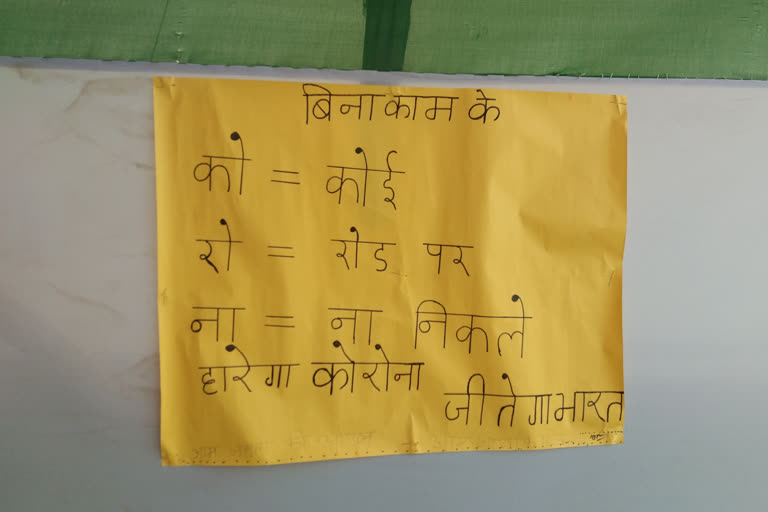 बिना काम के
को = कोई
रो = रोड पर
ना = ना निकले
हारेगा कोरोना
जीतेगा भारत